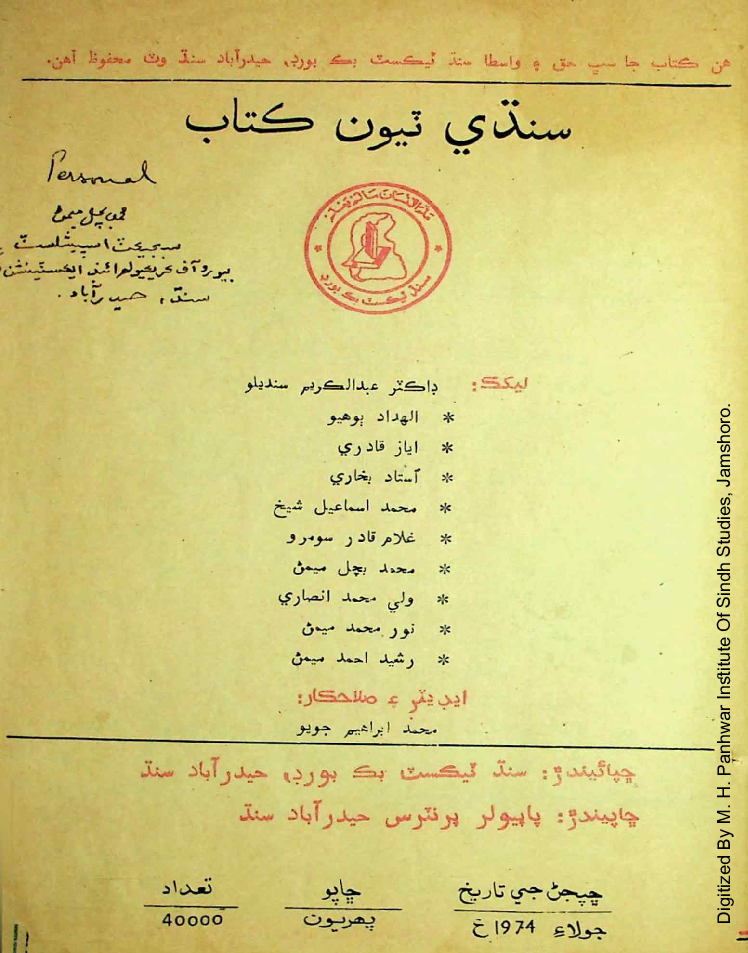 هن ڪتاب جا سڀ حق ۽ واسطا سنڌ ٽيڪسٽ بڪ بورڊ، حيدرآباد سنڌ وٽ محفوظ آهن.
سنڌي ٽيون ڪتاب
Personal
محمد بچل ميمڻ
سبجيڪٽ اسپيشلسٽ
بيورو آف ڪريڪيولم ائنڊ ايڪسٽينشن
سنڌ، حيدرآباد.
سنڌ ٽيڪسٽ بڪ بورڊ
ليکڪ: ڊاڪٽر عبدالڪريم سنديلو
* الهداد ٻوهيو
* اياز قادري
* اُستاد بخاري
* محمد اسماعيل شيخ
* غلام قادر سومرو
* محمد بچل ميمڻ
* ولي محمد انصاري
* نور محمد ميمڻ
* رشيد احمد ميمڻ
ايڊيٽر ۽ صلاحڪار:
محمد ابراهيم جويو
ڇپائيندڙ: سنڌ ٽيڪسٽ بڪ بورڊ، حيدرآباد سنڌ
ڇاپيندڙ: پاپيولر پرنٽرس حيدرآباد سنڌ
ڇپجڻ جي تاريخ ڇاپو تعداد
جولاءِ 1974ع پهريون 40000
Digitized By M. H. Panhwar Institute Of Sindh Studies, Jamshoro.